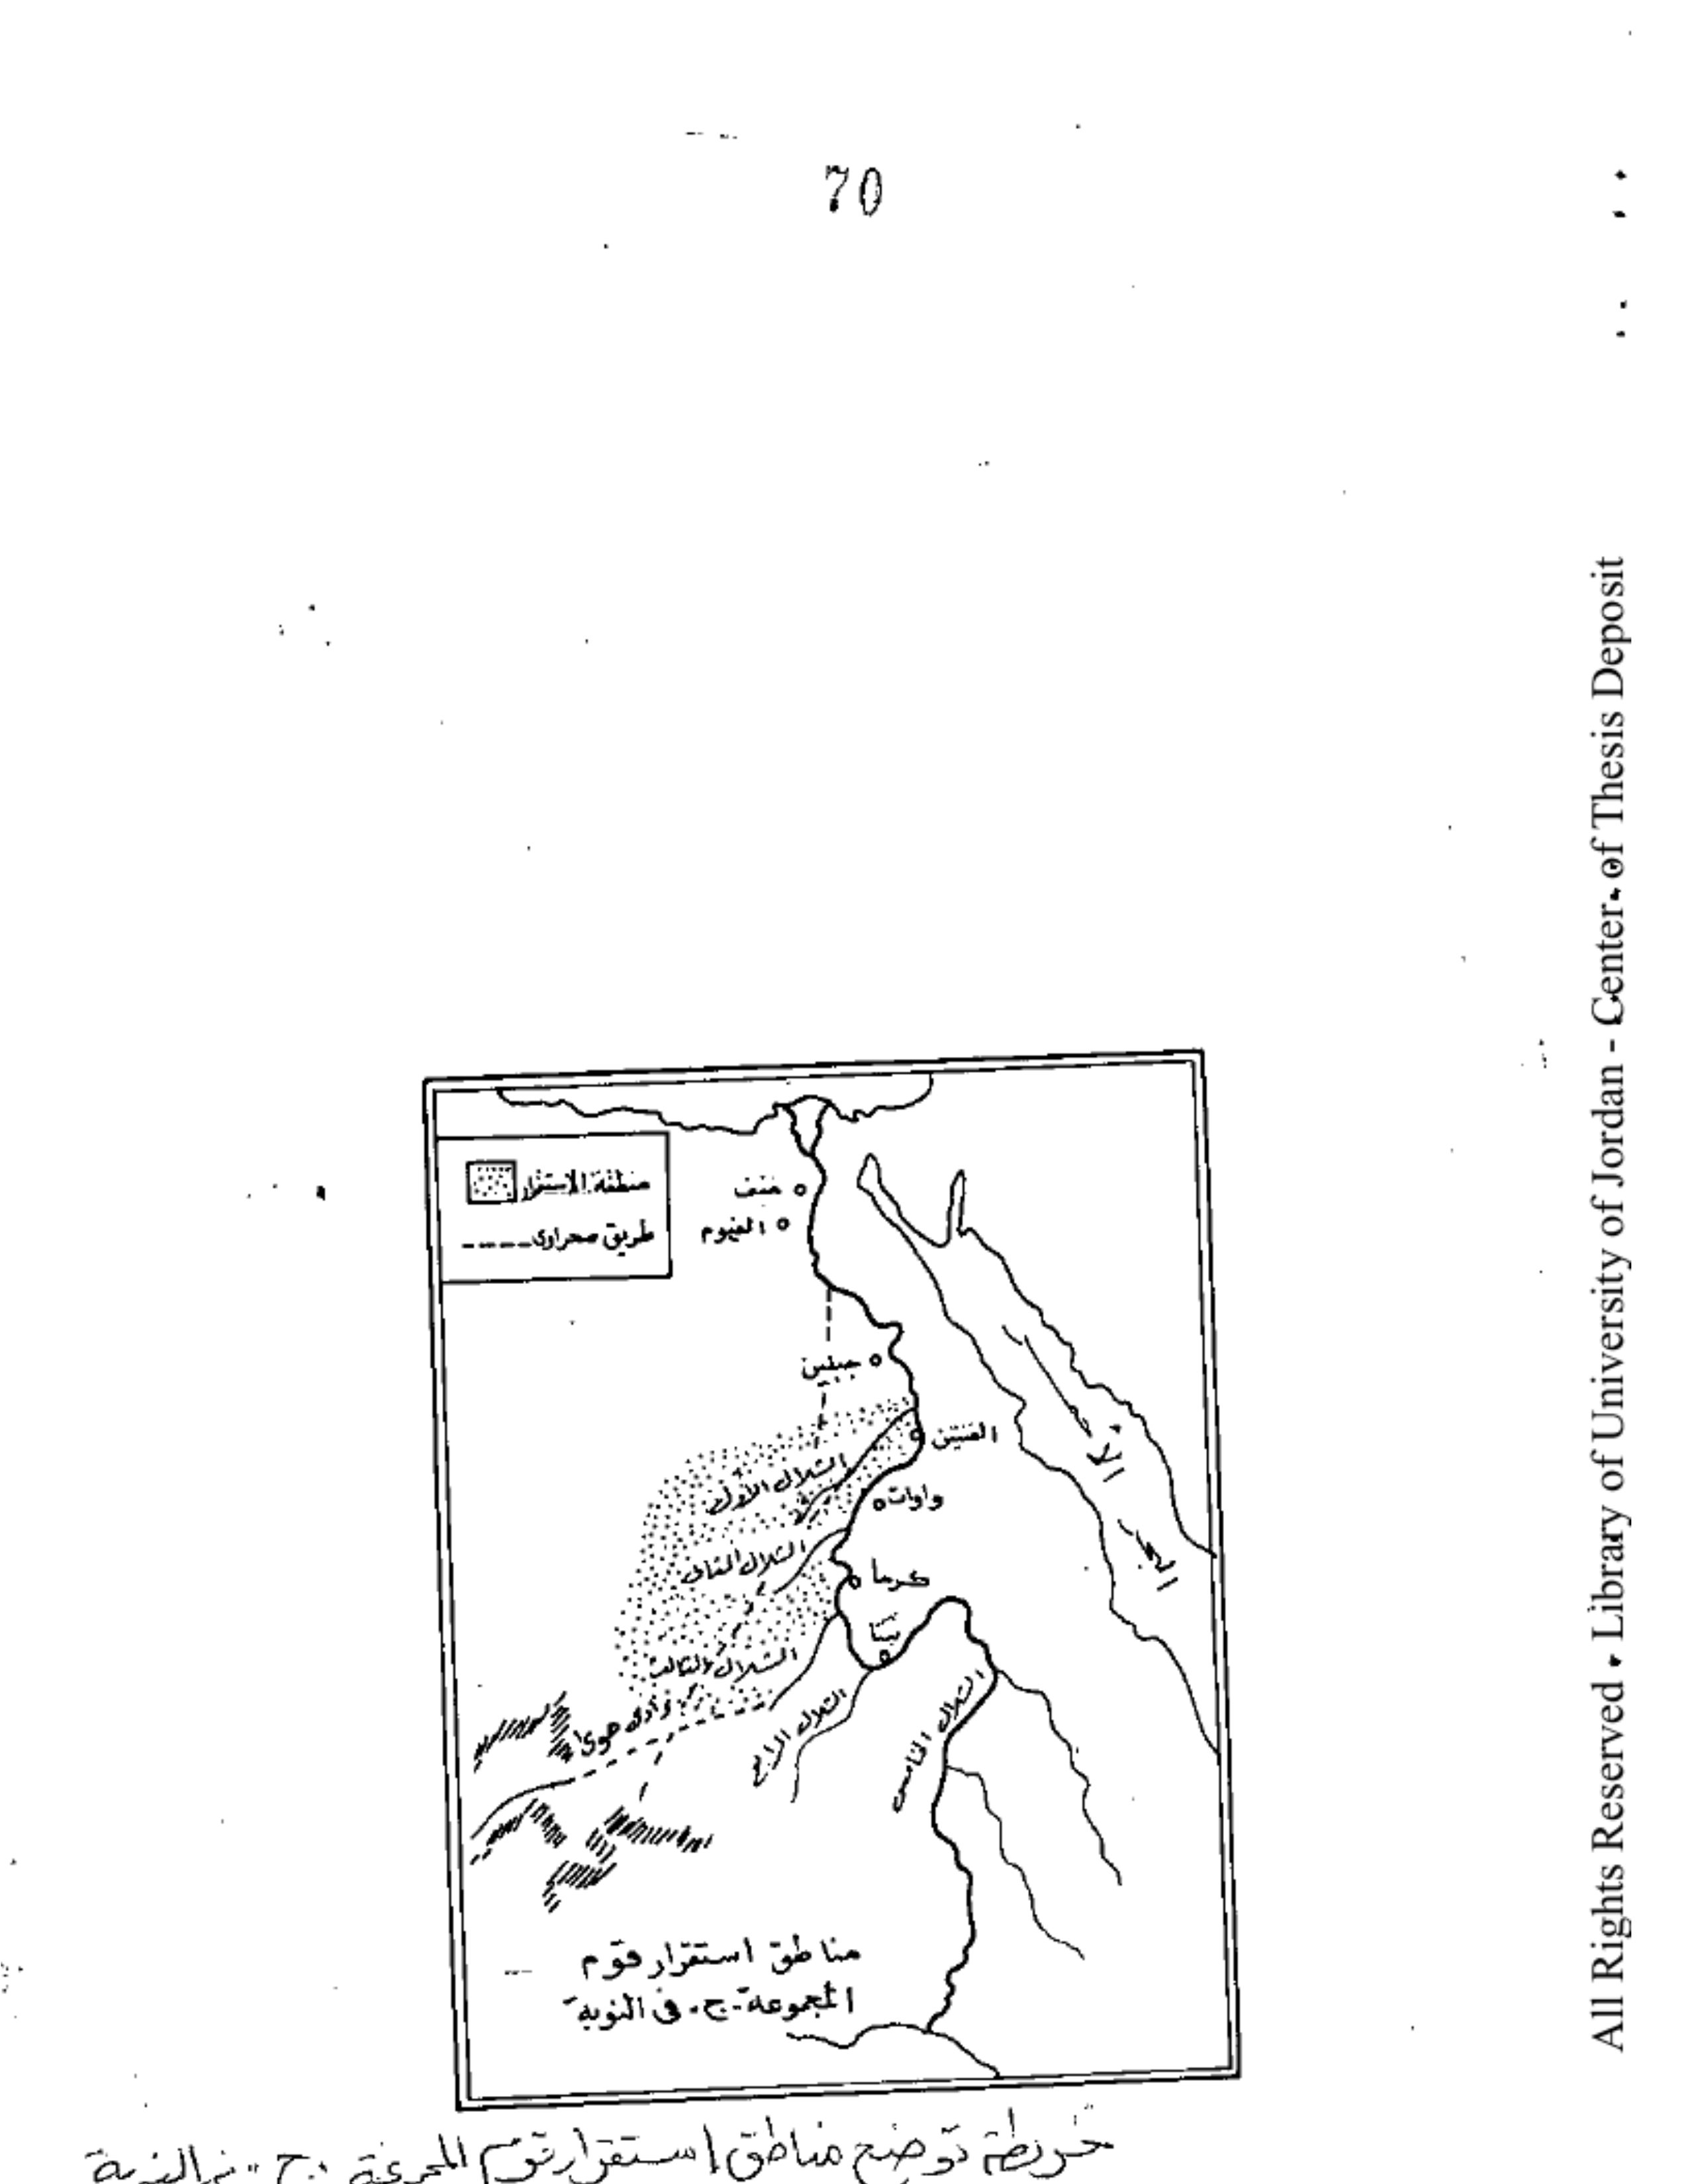 70
منطقة الاستقرار
طريق صحراوى
منف
الفيوم
جبلين
الفنتين
الشلال الأول
واوات
الشلال الثانى
كرما
نبتا
الشلال الثالث
وادى هوى
الشلال الرابع
الشلال الخامس
مناطق استقرار قوم
المجموعة - ج - فى النوبة
خريطة توضح مناطق استقرار قوم المجموعة "ج" في النوبة
All Rights Reserved - Library of University of Jordan - Center of Thesis Deposit